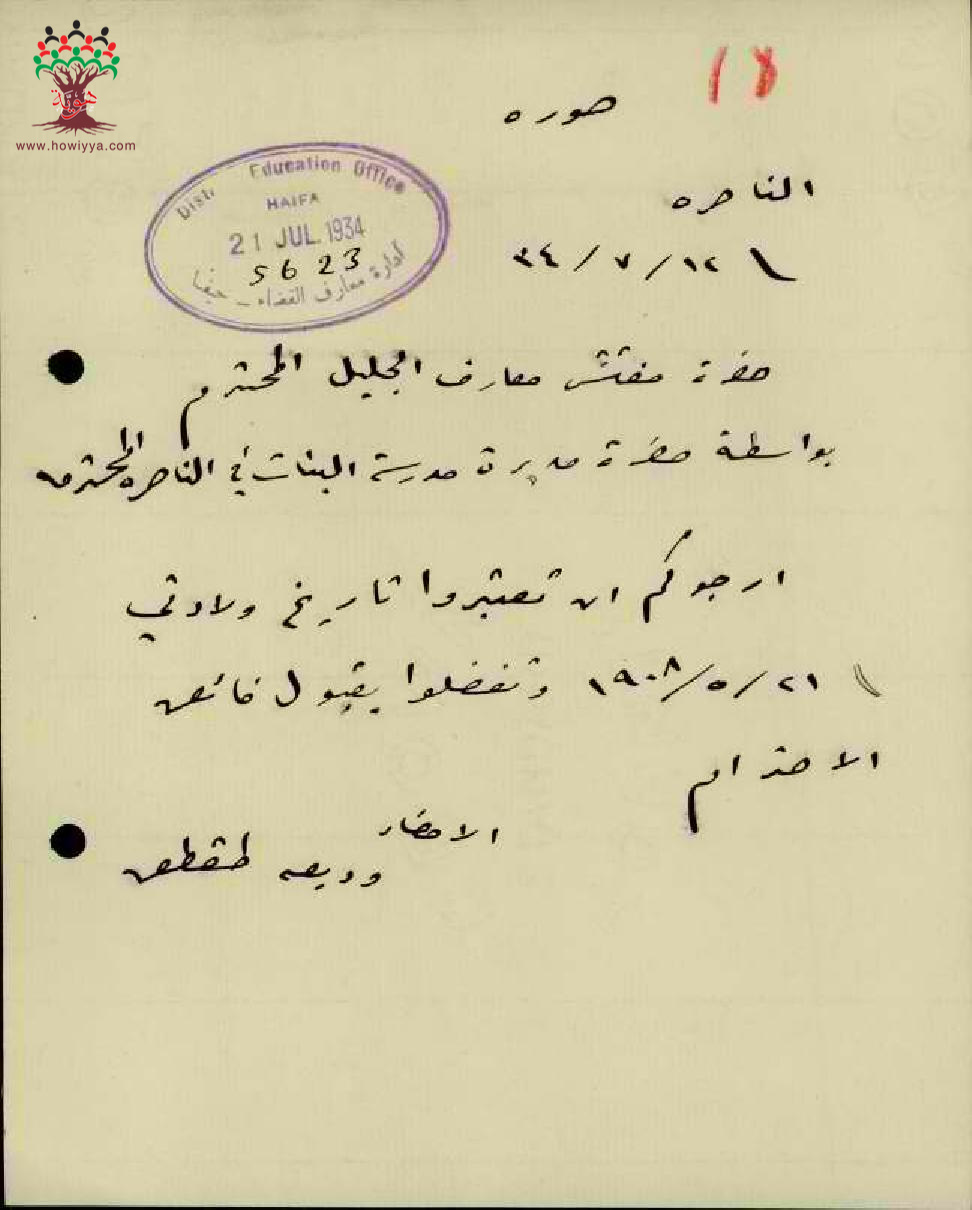 هويّة
www.howiyya.com
١٧
صوره
Dist. Education Office
HAIFA
21 JUL 1934
5623
ادارة معارف القضاء - حيفا
الناصره
١٢/٧/٣٤
حضرة مفتش معارف الجليل المحترم
بواسطة حضرة مديرة مدرسة البنات في الناصره المحترمه
ارجوكم ان تعتبروا تاريخ ولادتي
٢١/٥/١٩٠٨ وتفضلوا بقبول فائق
الاحترام
الامضاء
وديعه طقطق